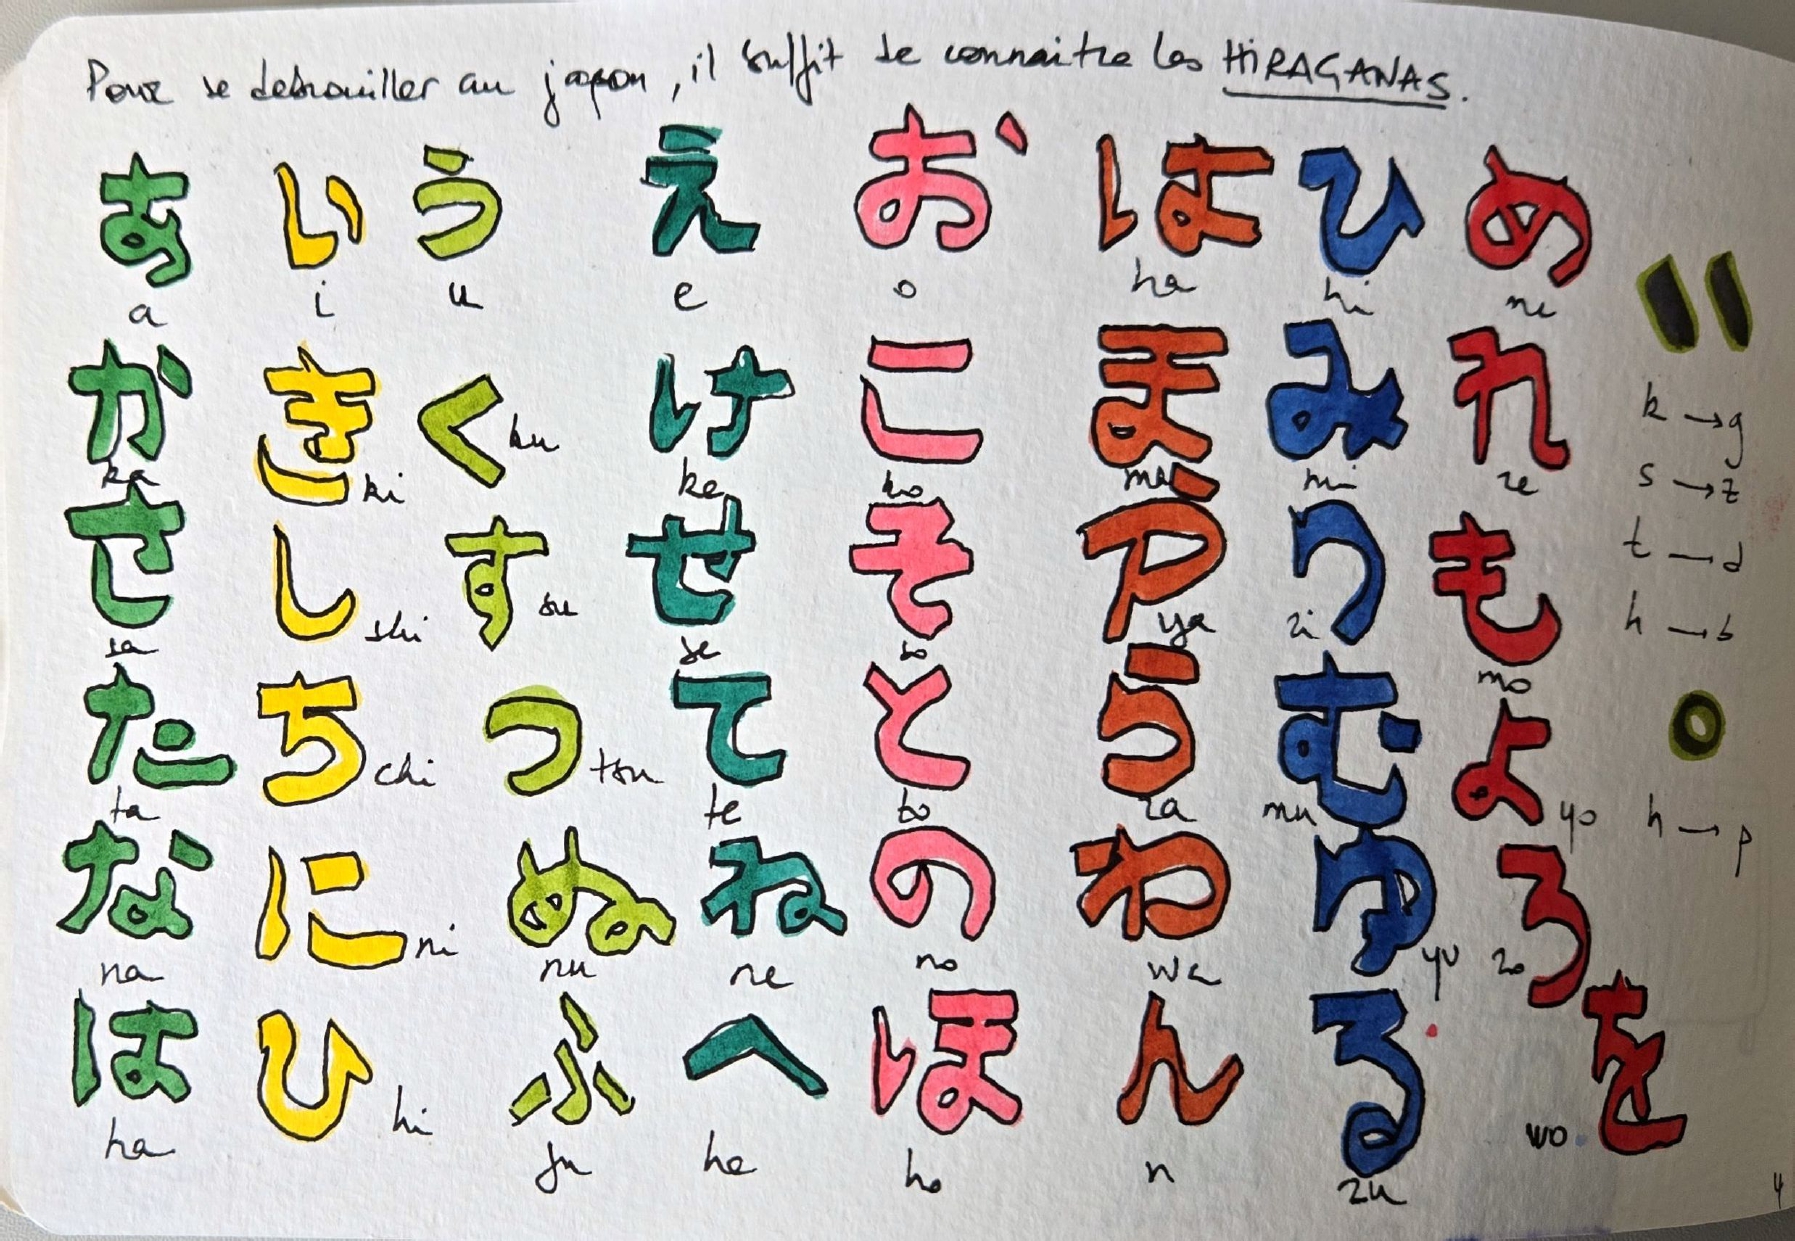 Pour se debrouiller au japon, il suffit de connaitre les HIRAGANAS.
あ い う え お は ひ め
a i u e o ha hi me
か き く け こ ま み れ
ka ki ku ke ko ma mi re
k → g
s → z
さ し す せ そ や り も
sa shi su se so ya ri mo
t → d
h → b
た ち つ て と ら む よ
ta chi tsu te to ra mu yo
h → p
な に ぬ ね の わ ゆ ろ
na ni nu ne no wa yu ro
は ひ ふ へ ほ ん る を
ha hi fu he ho n ru wo
4